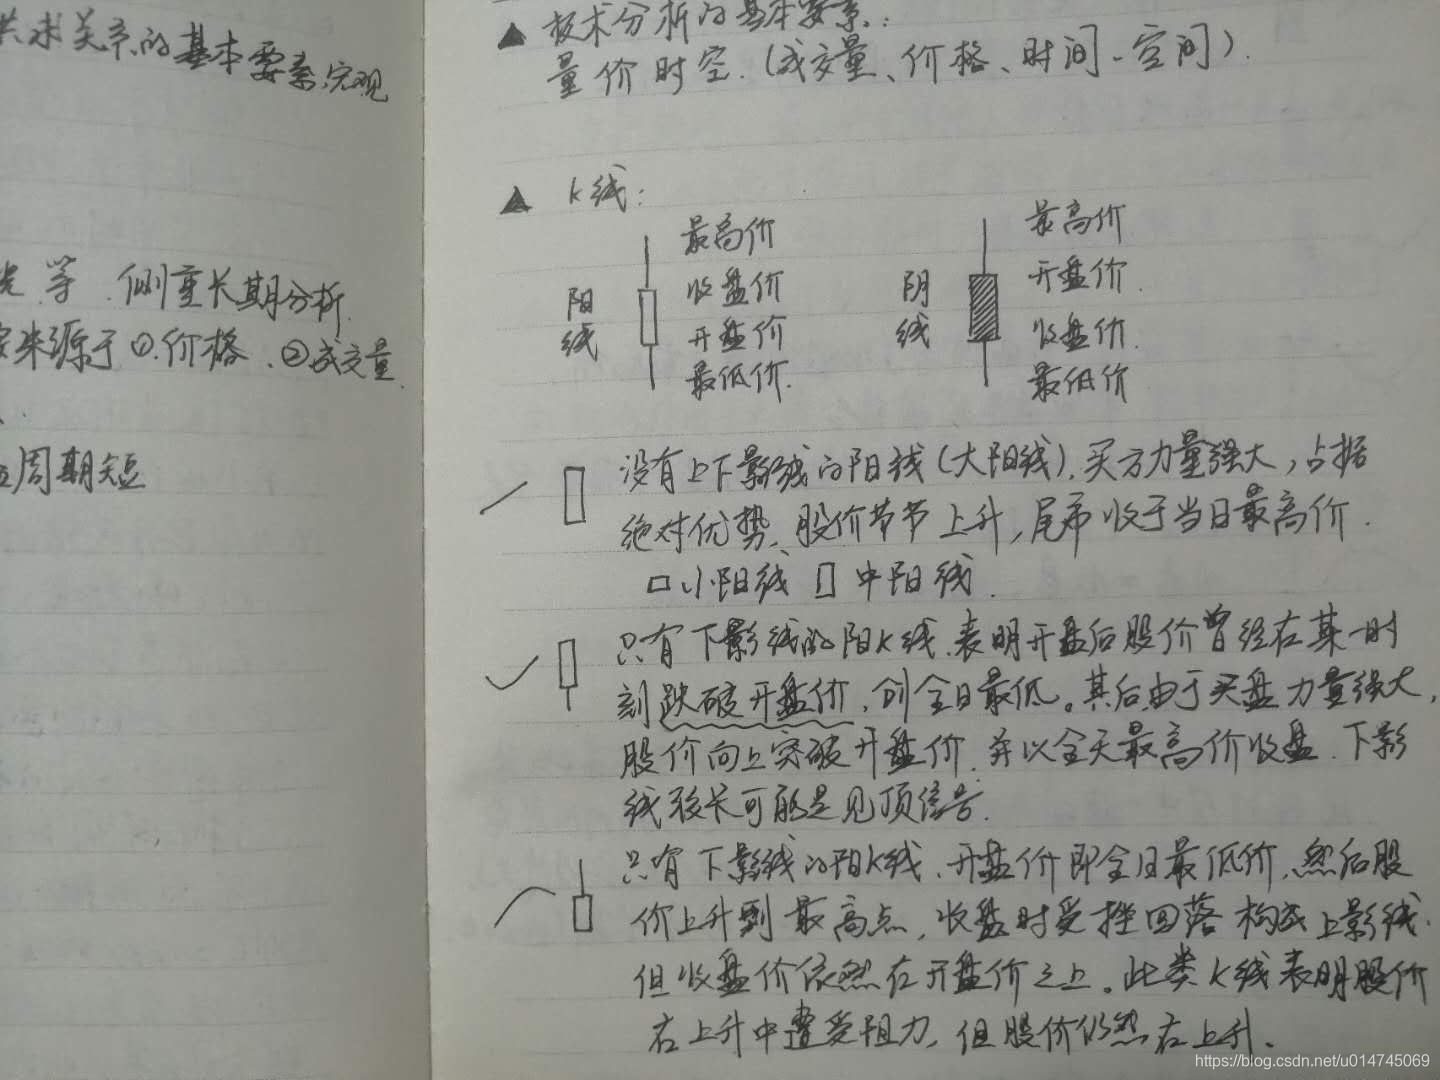 共求关系的基本要素,宏观
等.侧重长期分析.
来源于①.价格.②成交量.
周期短
▲ 技术分析的基本要素:
量价时空.(成交量、价格、时间、空间).
▲ K线:
阳线
最高价
收盘价
开盘价
最低价.
阴线
最高价
开盘价.
收盘价.
最低价
没有上下影线的阳线(大阳线).买方力量强大,占据
绝对优势,股价节节上升,尾市收于当日最高价.
小阳线 中阳线.
只有下影线的阳K线.表明开盘后股价曾经在某一时
刻跌破开盘价,创全日最低。其后由于买盘力量强大,
股价向上突破开盘价.并以全天最高价收盘.下影
线较长可能是见顶信号.
只有下影线的阳K线.开盘价即全日最低价.然后股
价上升到最高点,收盘时受挫回落构成上影线.
但收盘价依然在开盘价之上。此类K线表明股价
在上升中遭受阻力,但股价仍然在上升.
https://blog.csdn.net/u014745069